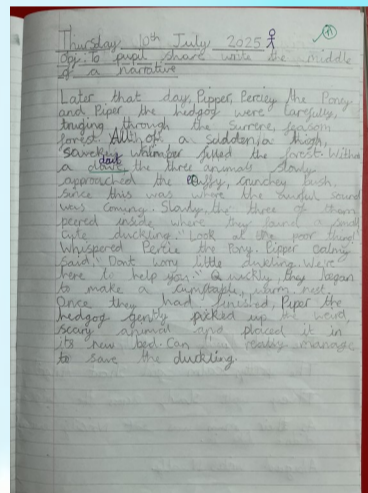 Thursday 10th July 2025
Obj: To pupil share write the middle
of a narrative
Later that day, Pipper, Percie, the Poney
and Piper the hedgog were carefully,
truging through the
forest. All of a sudden, a high,
whimper filled the forest. With
a dart the three animals slowly
approached the puffy, crunchey bush,
since this was where the sound
was coming. Slowly, the three of them
peered inside where they found a small
cute duckling. "Look at the poor thing"
Whispered Percie the Pony. Pipper calmy
said, "Dont worry little duckling. We're
here to help you." Quickly, they began
to make a cumftable, warm nest,
Once they had finished, Piper the
hedgog gently picked up the weird,
scary animal and placed it in
its new bed. Can I really manage
to save the duckling.